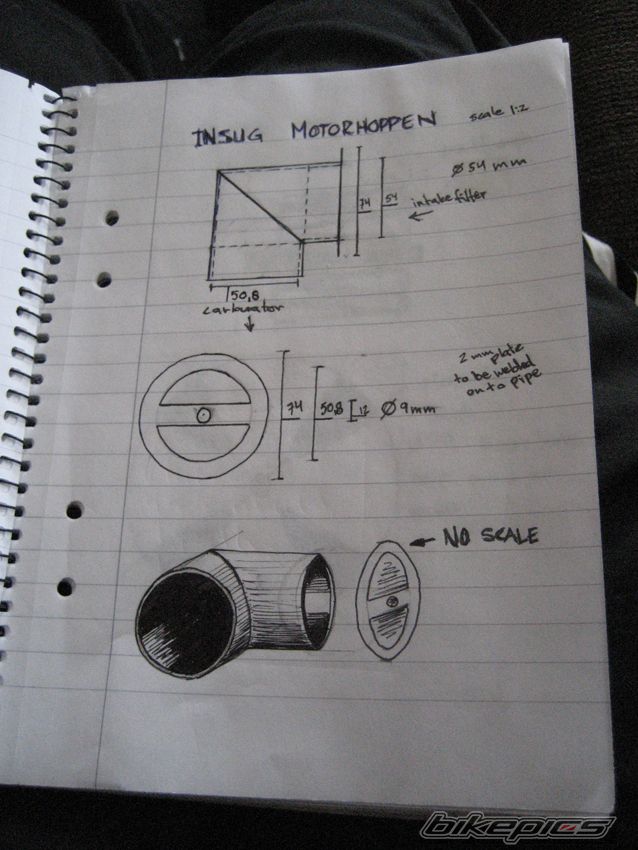 INSUG MOTORHOPPEN
scale 1:2
Ø 54 mm
74
54
intake filter
50,8
carburator
2 mm plate
to be welded
on to pipe
74
50,8
12
Ø 9mm
NO SCALE
bikepics